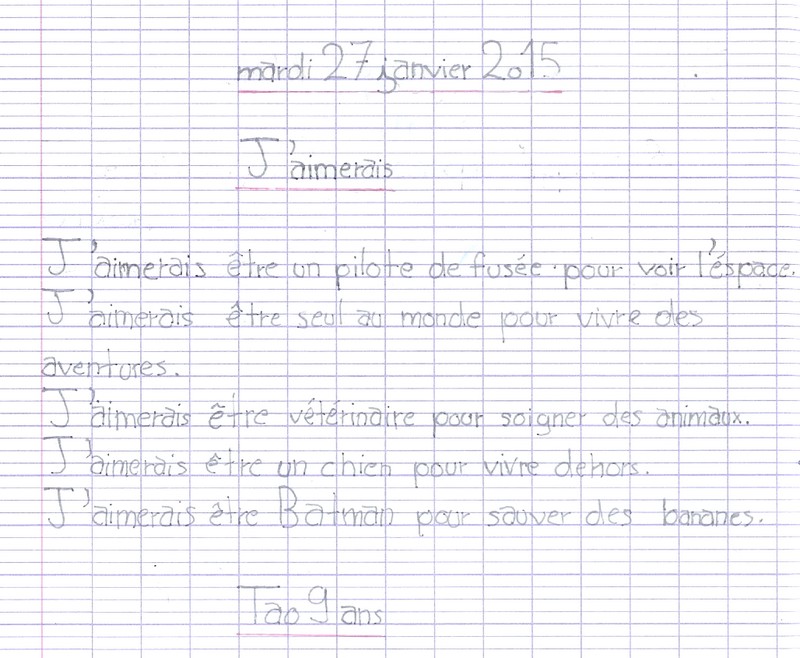 mardi 27 janvier 2015
J'aimerais
J'aimerais être un pilote de fusée pour voir l'éspace.
J'aimerais être seul au monde pour vivre des
aventures.
J'aimerais être vétérinaire pour soigner des animaux.
J'aimerais être un chien pour vivre dehors.
J'aimerais être Batman pour sauver des bananes.
Tao 9 ans